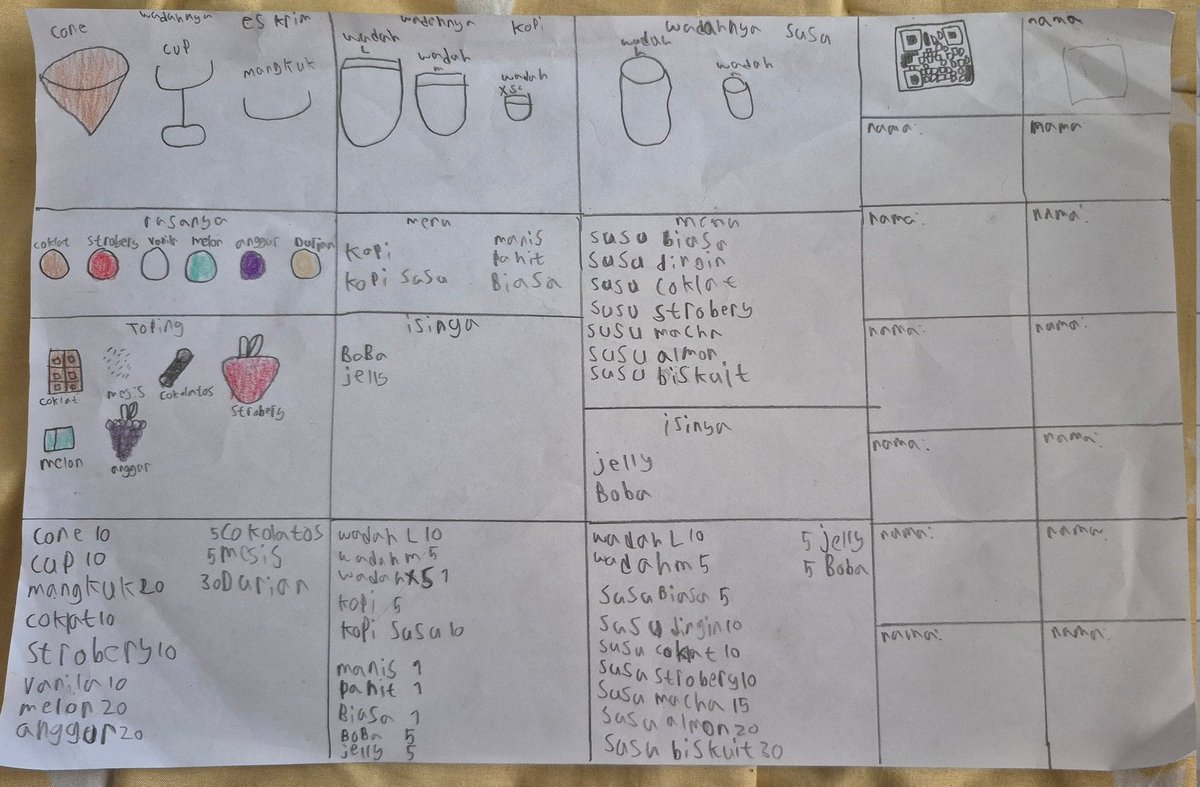 cone
wadahnya es krim
cup
mangkuk
wadahnya kopi
wadah L
wadah m
wadah xs
wadahnya susu
wadah L
wadah m
nama
nama:
nama:
nama:
nama:
nama:
nama:
nama:
nama:
nama:
nama.
nama:
nama.
rasanya
coklat strobery vanila melon anggur Durian
menu
kopi manis
pahit
kopi susu Biasa
menu
susu biasa
susu dingin
susu coklat
susu strobery
susu macha
susu almon
susu biskuit
Toping
coklat mesis cokolatos strobery
melon anggur
isinya
BoBa
jelly
isinya
jelly
Boba
cone 10 5 Cokolatos
cup 10 5 mesis
mangkuk 20 30 Durian
coklat 10
strobery 10
vanila 10
melon 20
anggur 20
wadah L 10
wadah m 5
wadah xs 1
kopi 5
kopi susu 10
manis 1
pahit 1
Biasa 1
BoBa 5
jelly 5
wadah L 10 5 jelly
wadah m 5 5 Boba
susu Biasa 5
susu dingin 10
susu coklat 10
susu strobery 10
susu macha 15
susu almon 20
susu biskuit 30